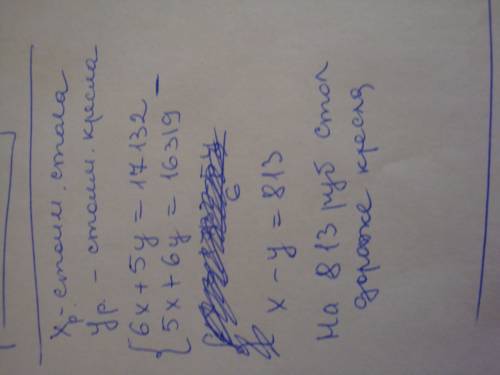 xр - стоим. стола
yр. - стоим. кресла
{ 6x + 5y = 17132
5x + 6y = 16319 -
x - y = 813
На 813 руб стол
дороже кресла